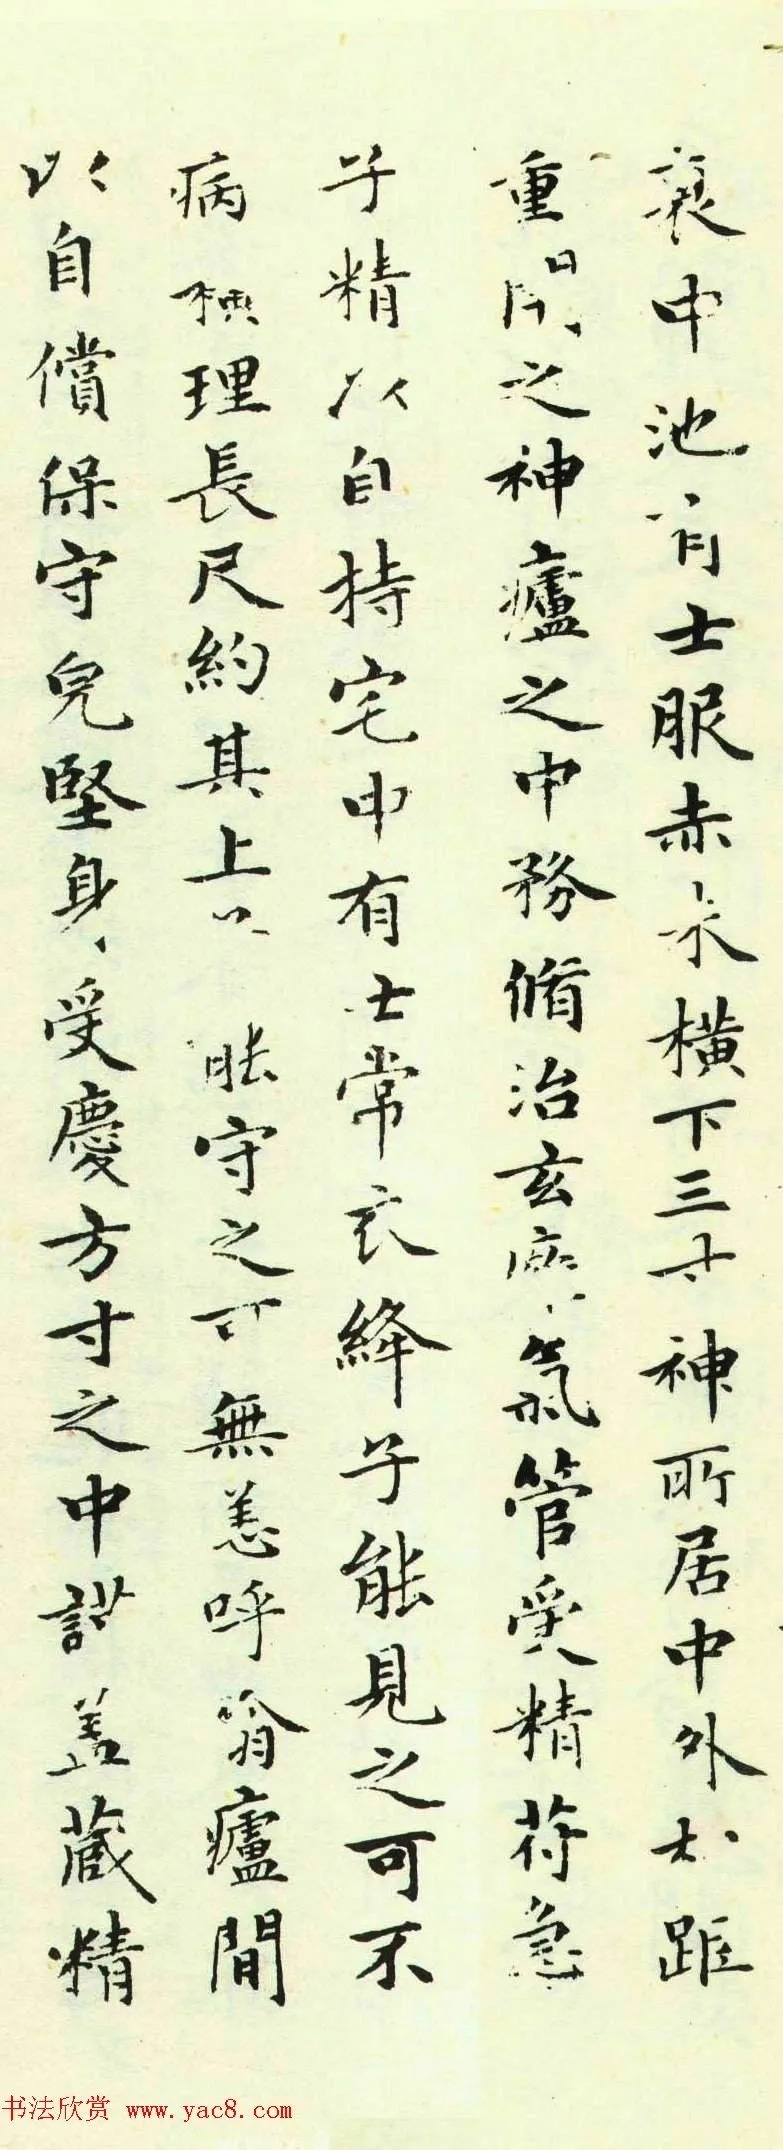 衰中池有士服赤朱橫下三寸神所居中外相距
重閉之神廬之中務脩治玄癰氣管受精苻急
子精以自持宅中有士常衣絳子能見之可不
病橫理長尺約其上 能守之可無恙呼翕廬間
以自償保守皃堅身受慶方寸之中謹盖藏精
书法欣赏 www.yac8.com